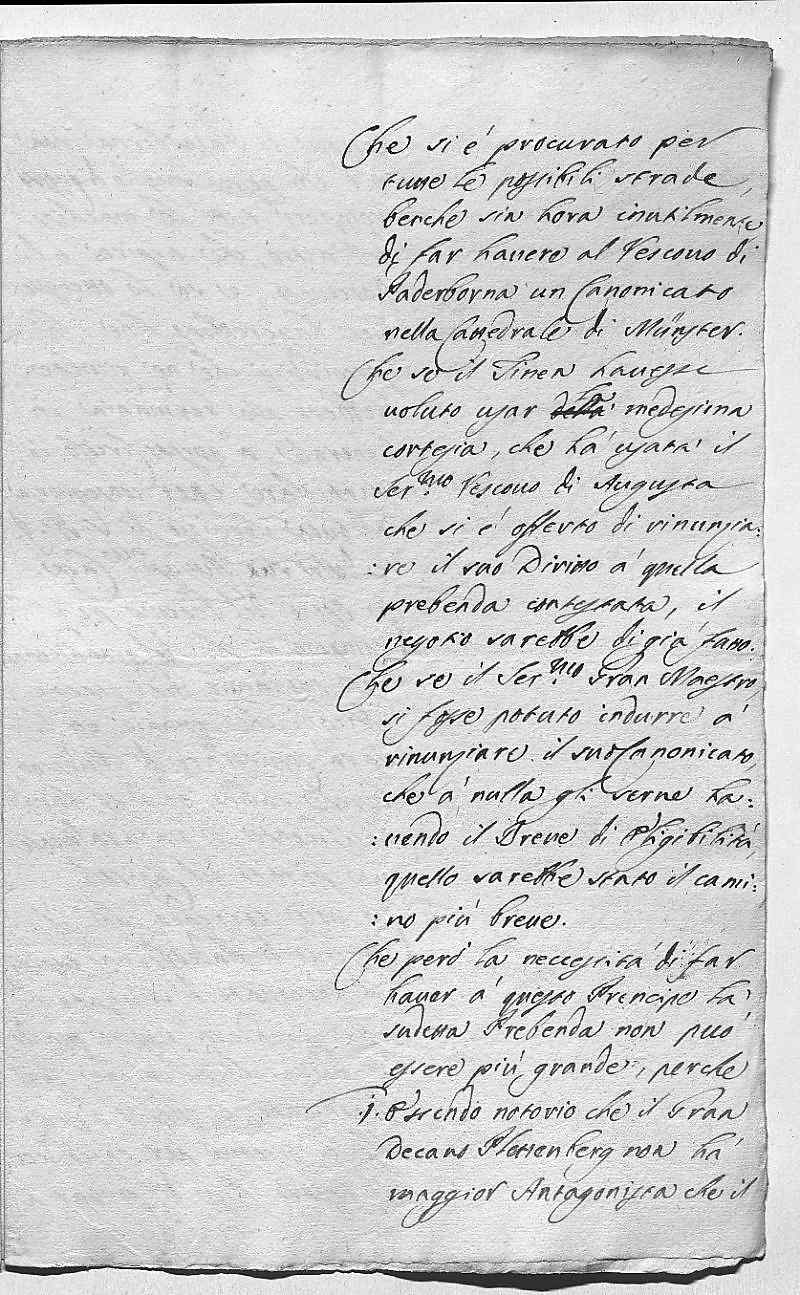 Che si é procurato per
tutte le possibili strade,
benche sin hora inutilmente
di far hauere al Vescouo di
Paderborna un Canonicato
nella Cattedrale di Münster.
Che se il Tinen hauesse
uoluto usar la medesima
cortesia, che há usata il
Ser.mo Vescouo di Augusta
che si é offerto di rinunzia:
:re il suo Diritto á quella
prebenda contestata, il
negotio sarebbe di giá fatto.
Che se il Ser.mo Gran Maestro,
si fosse potuto indurre á
rinunziare il suo Canonicato,
che á nulla gli serue ha:
:uendo il Breue di Eligibilitá,
quello sarebbe stato il cami:
:no piú breue.
Che peró la necessitá di far
hauer á questo Prencipe la
sudetta Prebenda non puó
essere piú grande, perche
.1. Essendo notorio che il Gran
Decano Plettenberg non há
maggior Antagonista che il